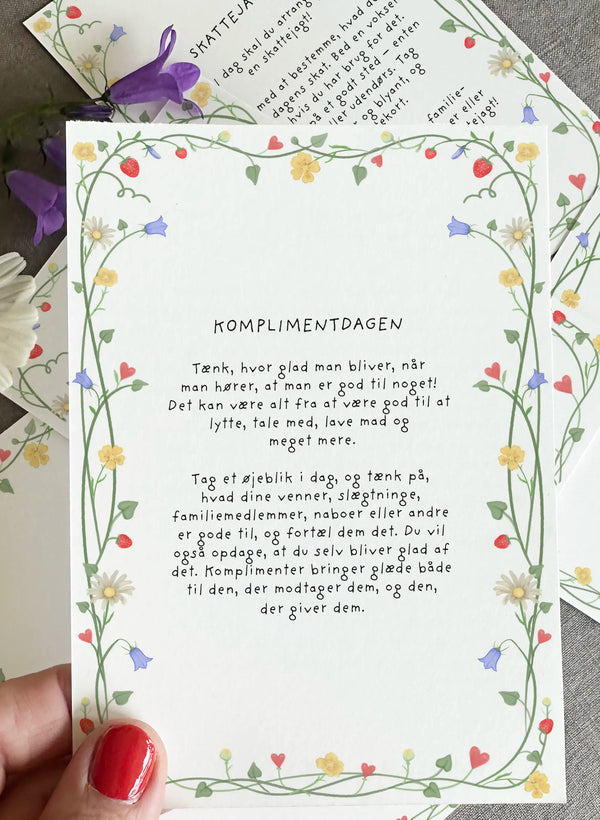 SKATTEJA
I dag skal du arrang
en skattejagt!
med at bestemme, hvad d
dagens skat. Bed en vokse
hvis du har brug for det.
på et godt sted – enten
eller udendørs. Tag
og blyant, og
kort.
familie-
er eller
tejagt!
KOMPLIMENTDAGEN
Tænk, hvor glad man bliver, når
man hører, at man er god til noget!
Det kan være alt fra at være god til at
lytte, tale med, lave mad og
meget mere.
Tag et øjeblik i dag, og tænk på,
hvad dine venner, slægtninge,
familiemedlemmer, naboer eller andre
er gode til, og fortæl dem det. Du vil
også opdage, at du selv bliver glad af
det. Komplimenter bringer glæde både
til den, der modtager dem, og den,
der giver dem.